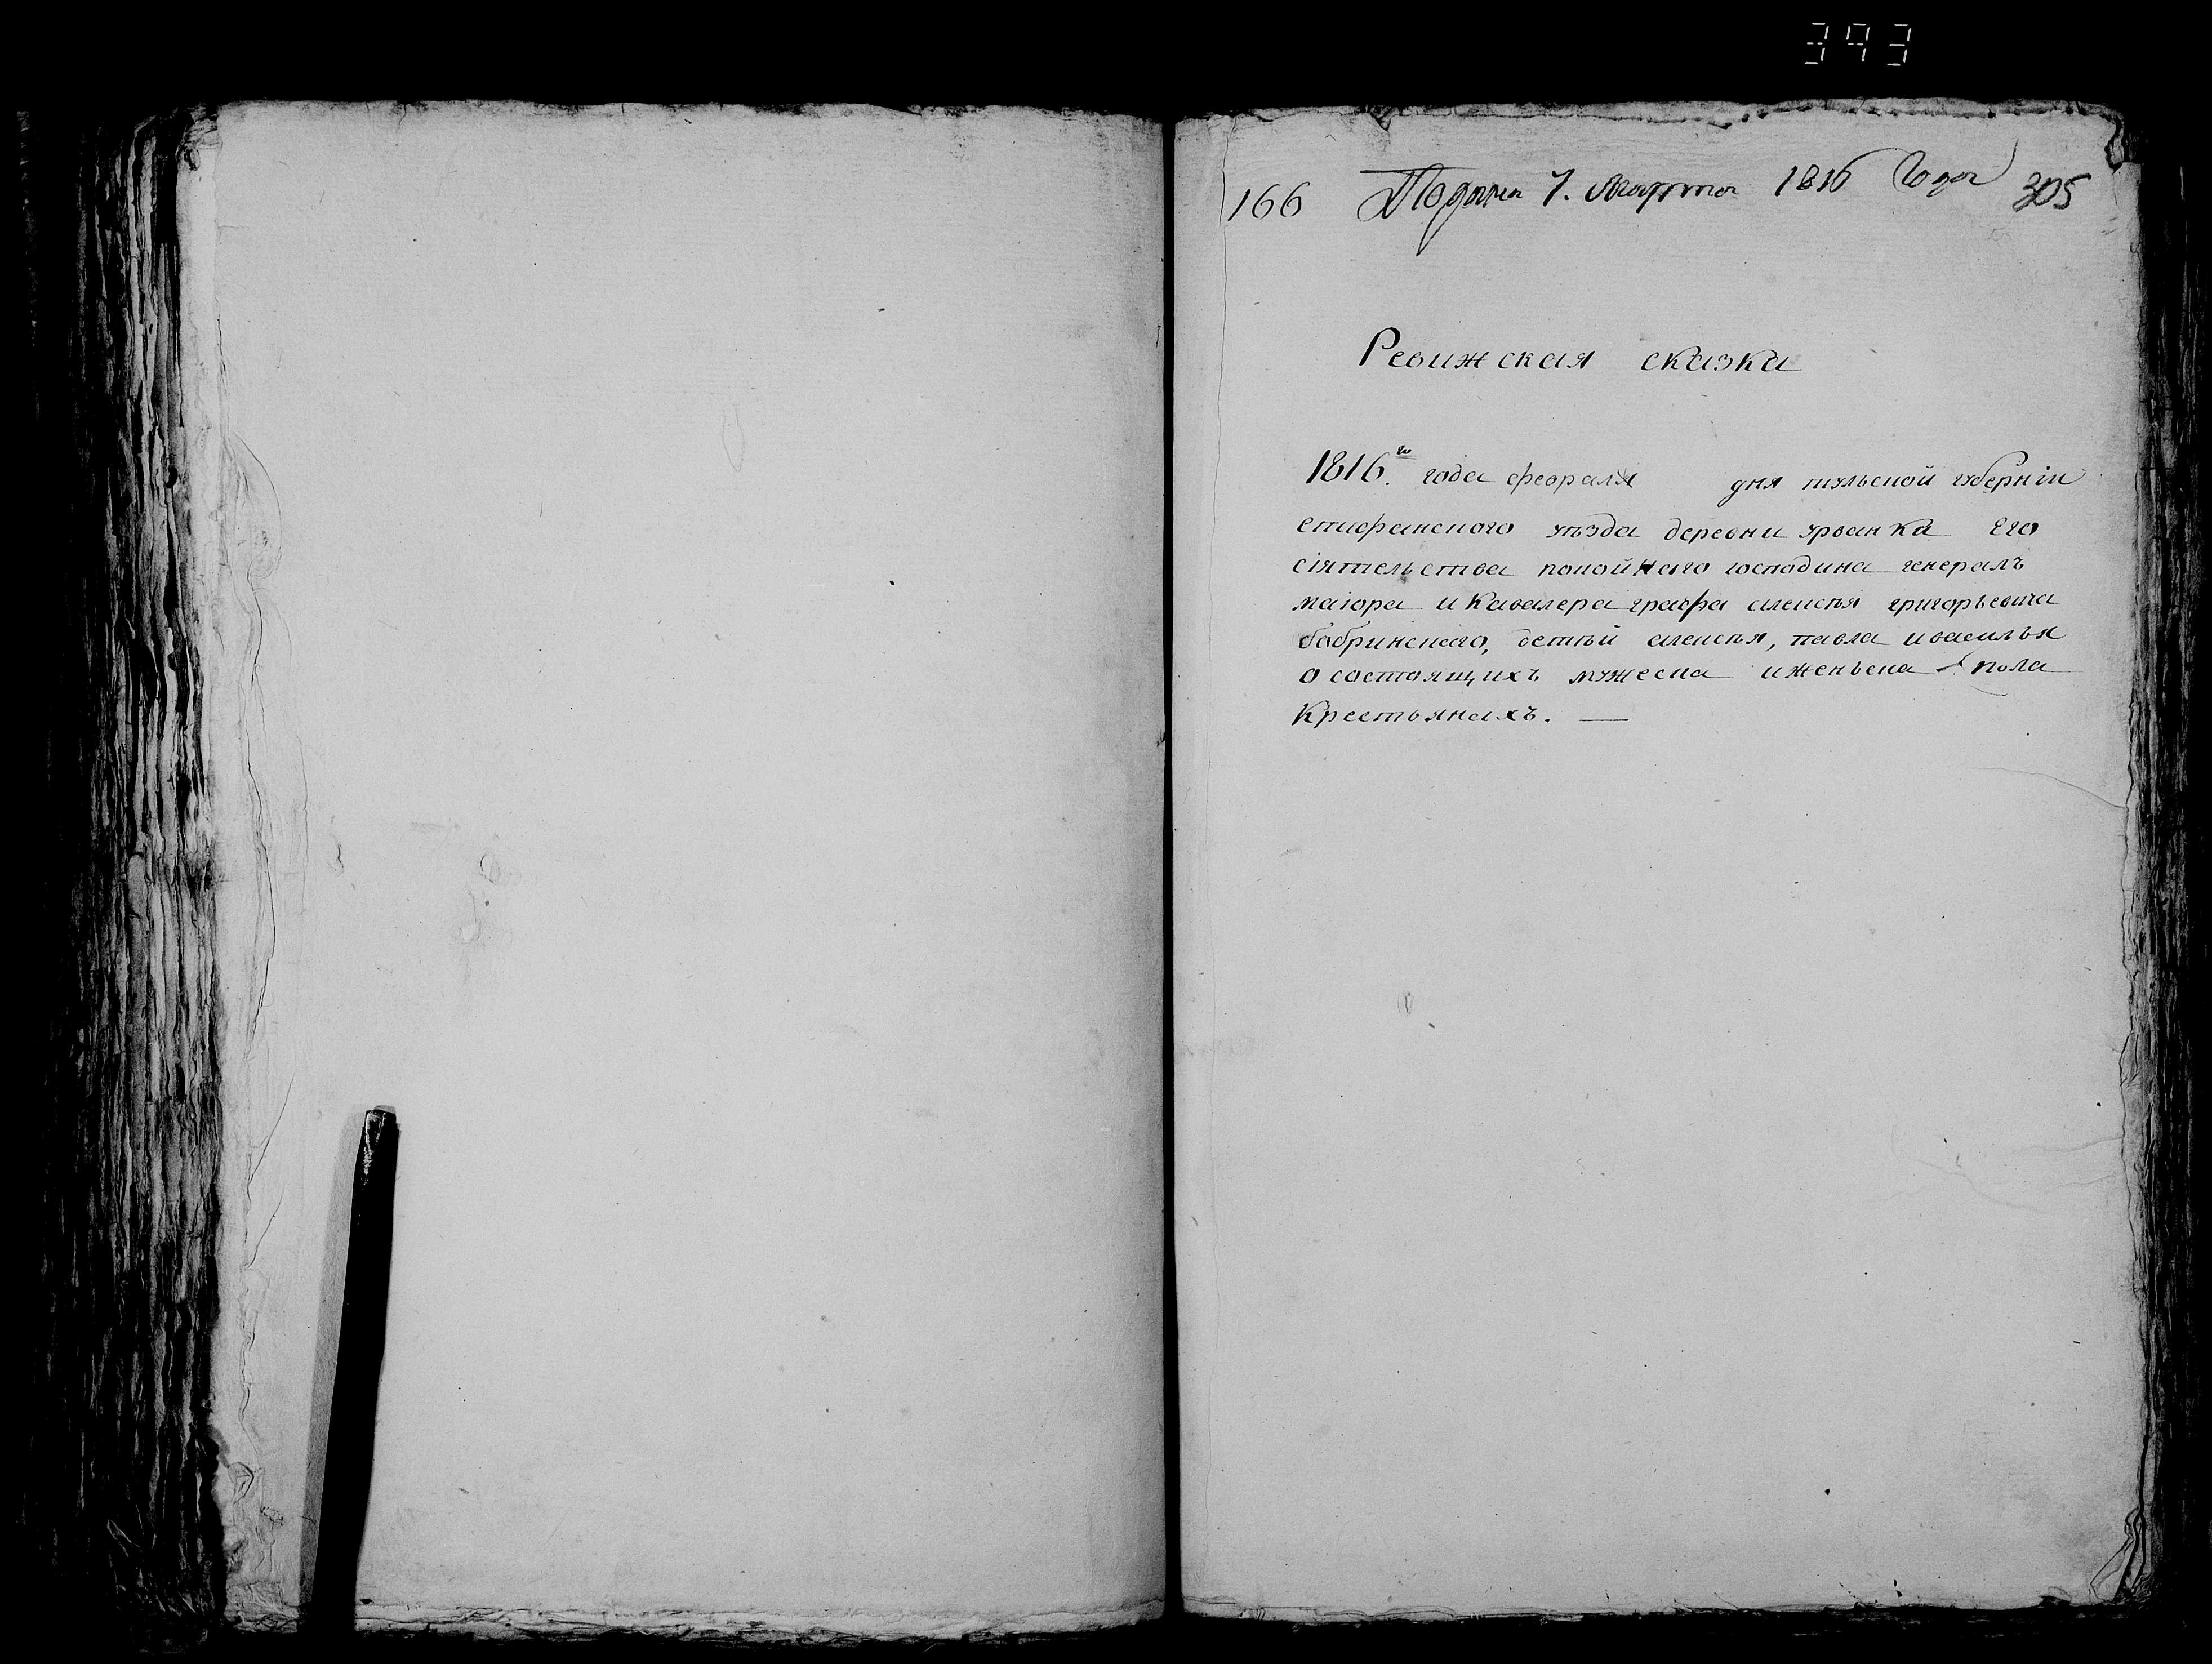 393
166 Подана 7. Марта 1816 Года 305
Ревижская сказка
1816.го года февраля дня тульской губерніи
епифанского уѣзда деревни урванка Его
сіятельства покойнаго господина генералъ
маіора и Кавалера графа алексѣя григорьевича
бобринскаго, детѣй алексѣя, павла и василья
о состоящихъ мужеска и женьска пола
Крестьянахъ.